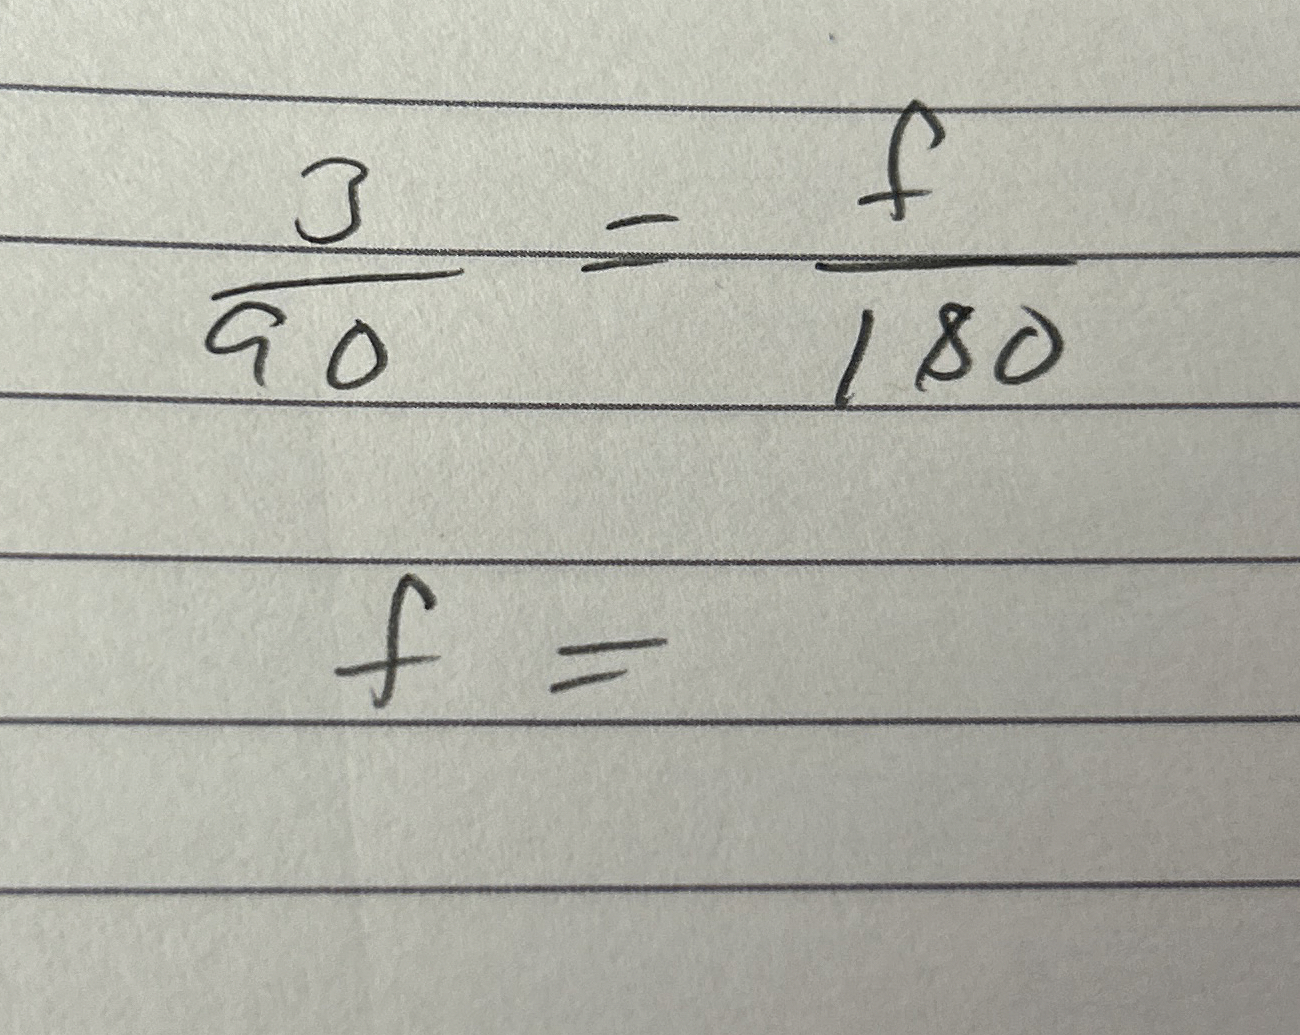 3/90 = f/180
f =